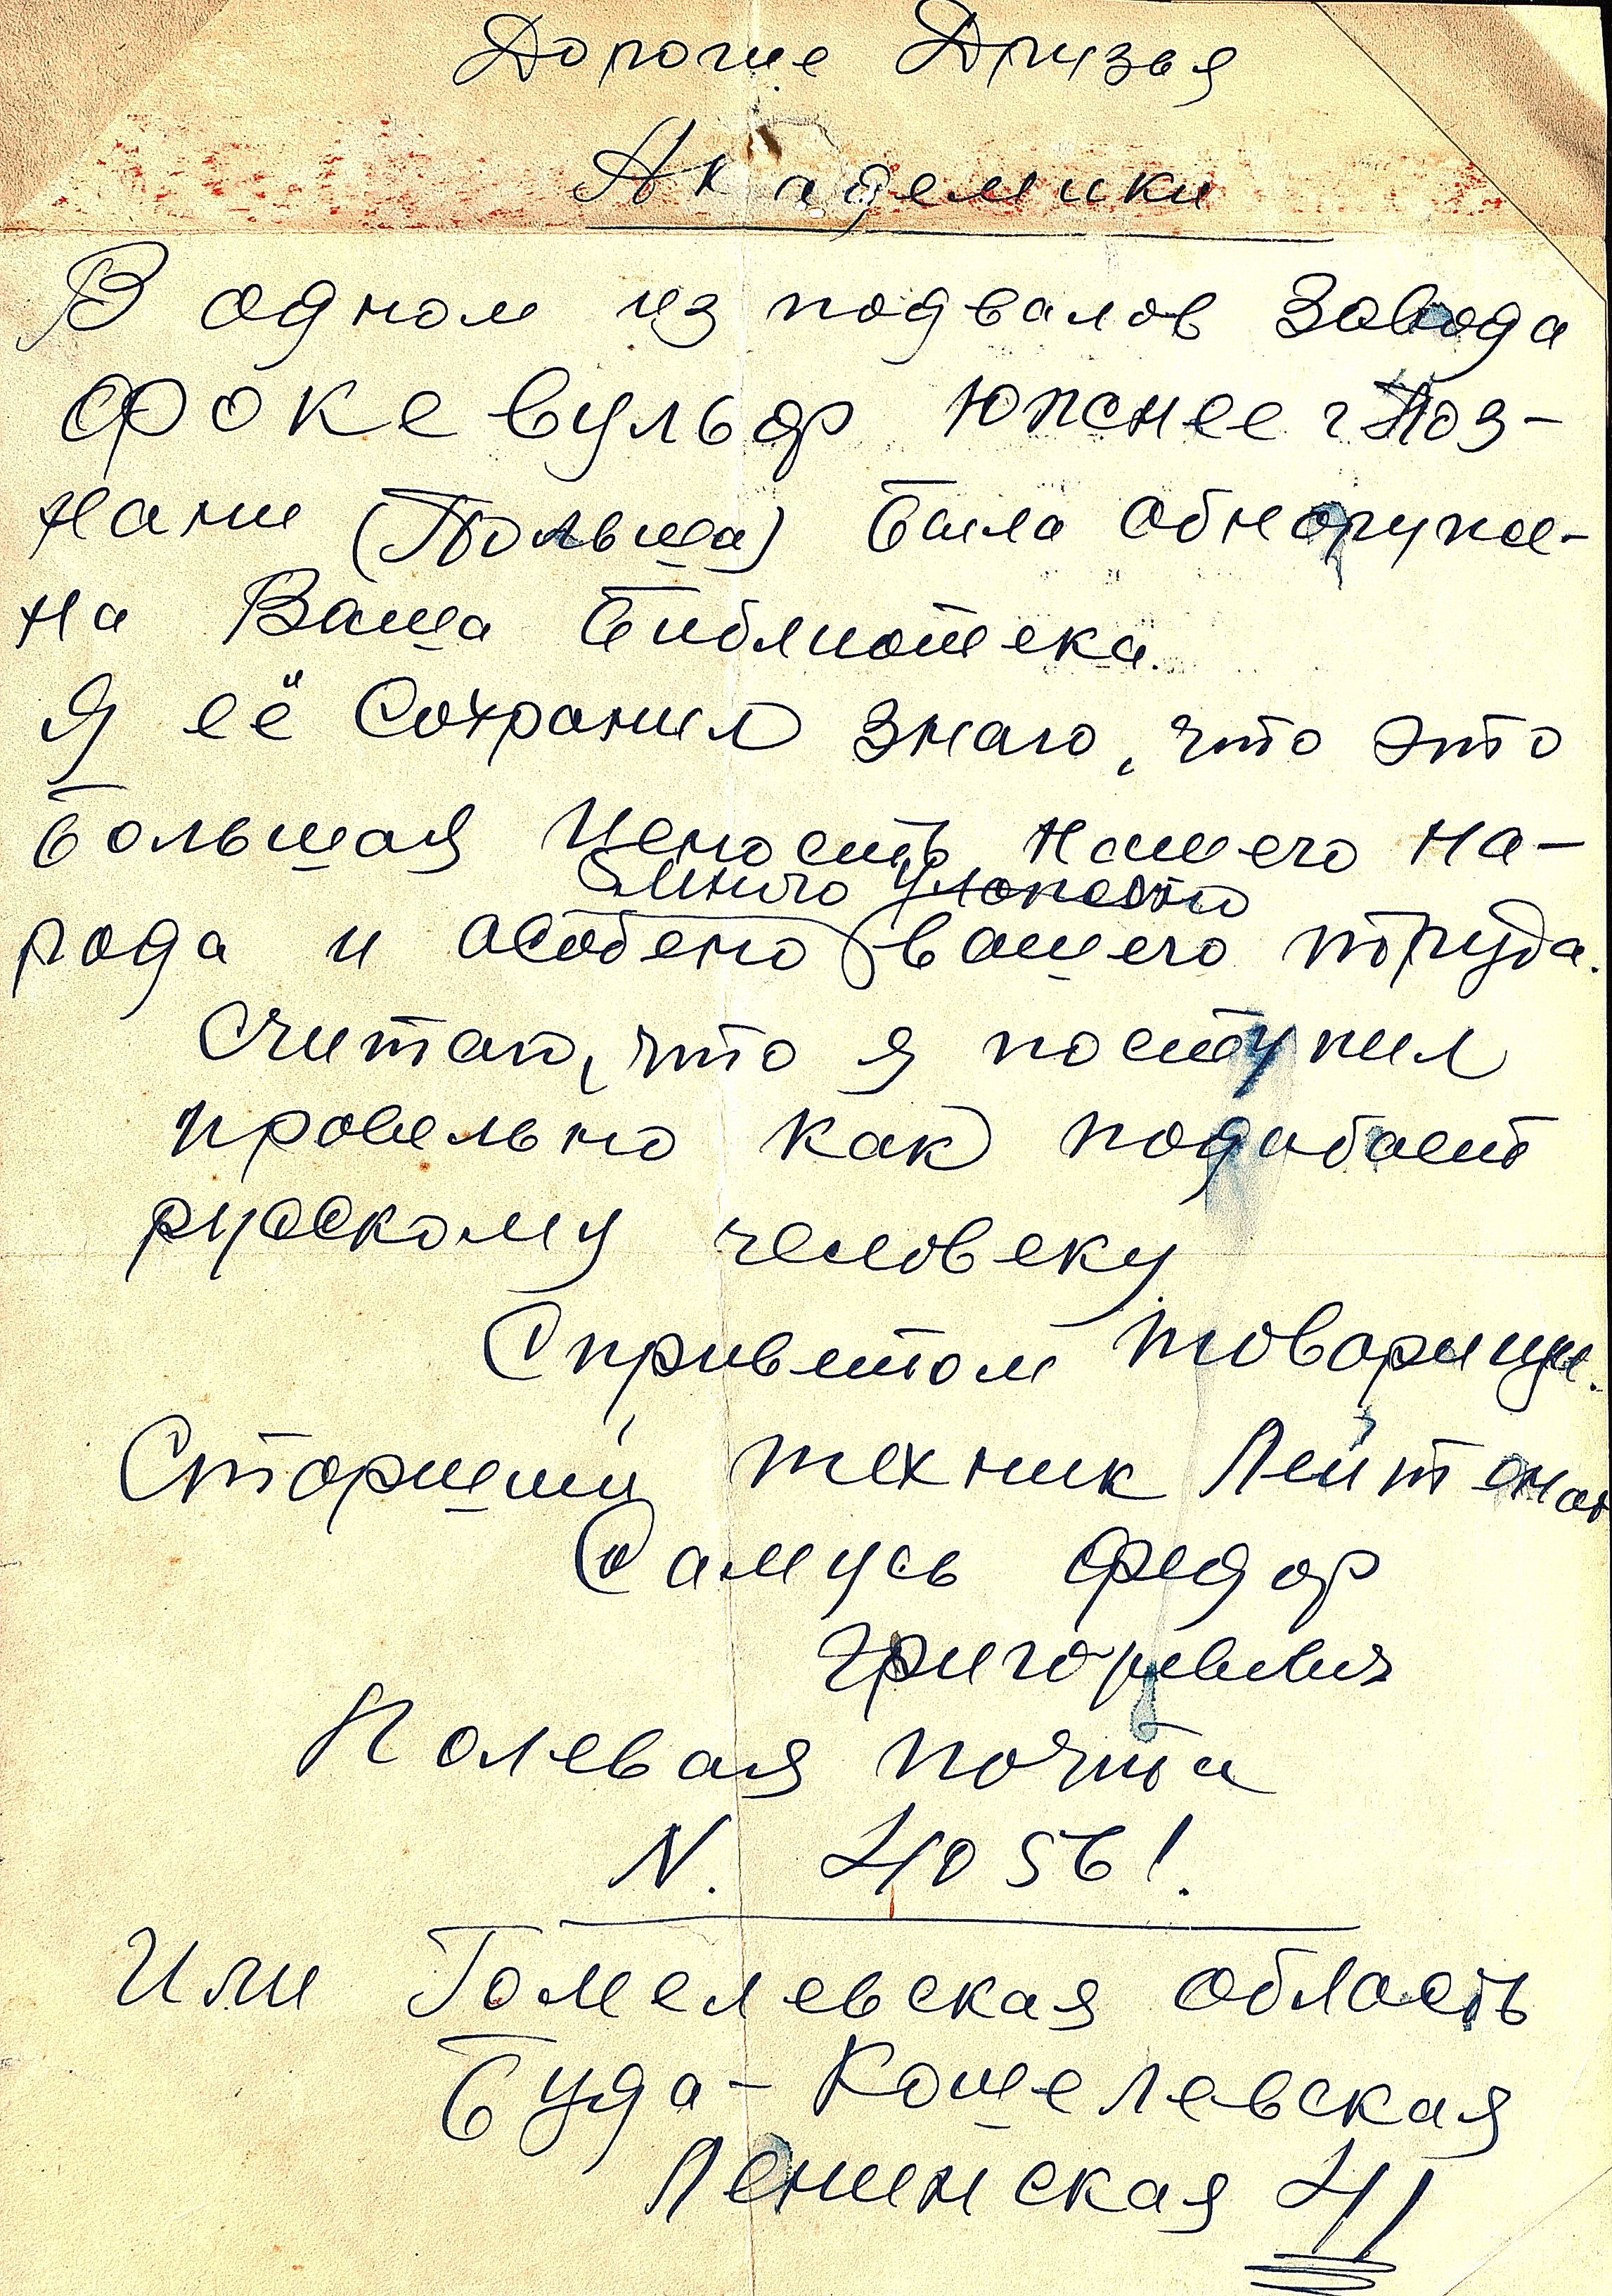 Дорогие Друзья
Академики
В одном из подвалов Завода
Фоке Вульф южнее г Поз-
нани (Польша) была обнаруже-
на Ваша библиотека.
Я её Сохранил знаю, что это
большая Ценость нашего на-
много уложено
рода и особено вашего труда.
Считаю, что я поступил
провельно как подабает
русскому человеку
С приветом товарищи.
Старший техник Лейтенан
Самусь Федор
Григорьевич
Полевая почта
N. 41056!
Или Гомелевская область
Буда-Кошелевская
Ленинская 41